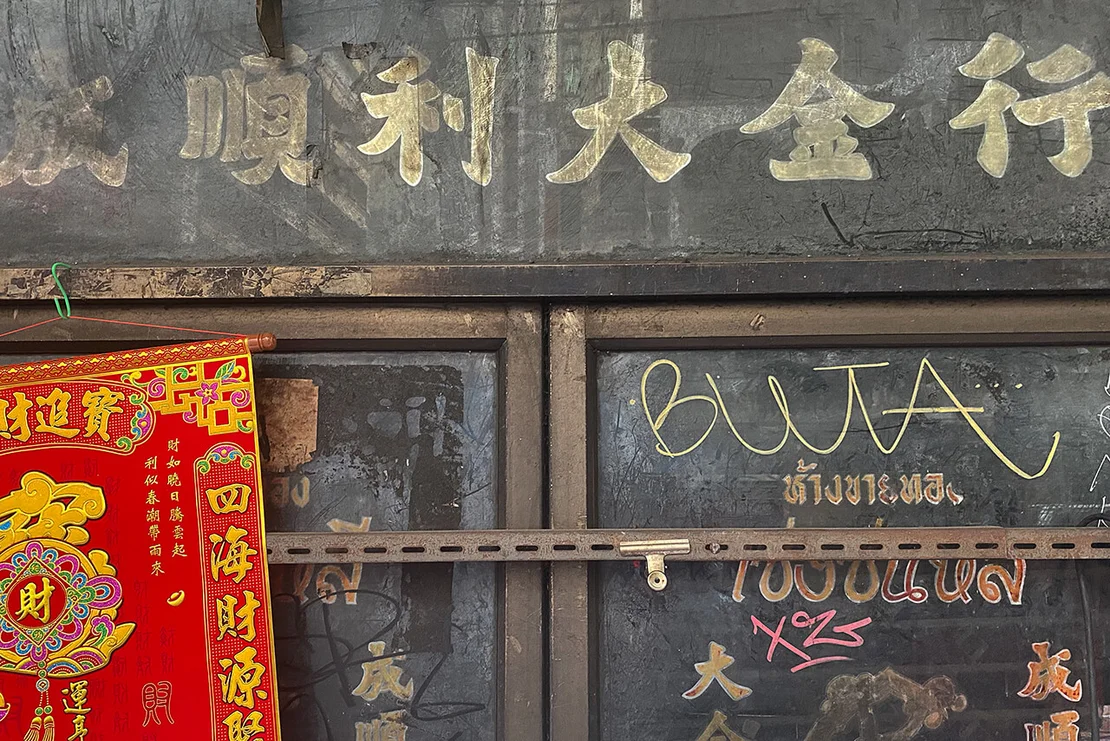 成順利大金行
財進寶
財如曉日騰雲起
利似春潮帶雨來
四海財源聚
財
運亨
BUTA
ห้างขายทอง
เซ่งซุ่นหลี
X25
大金
成順
成順